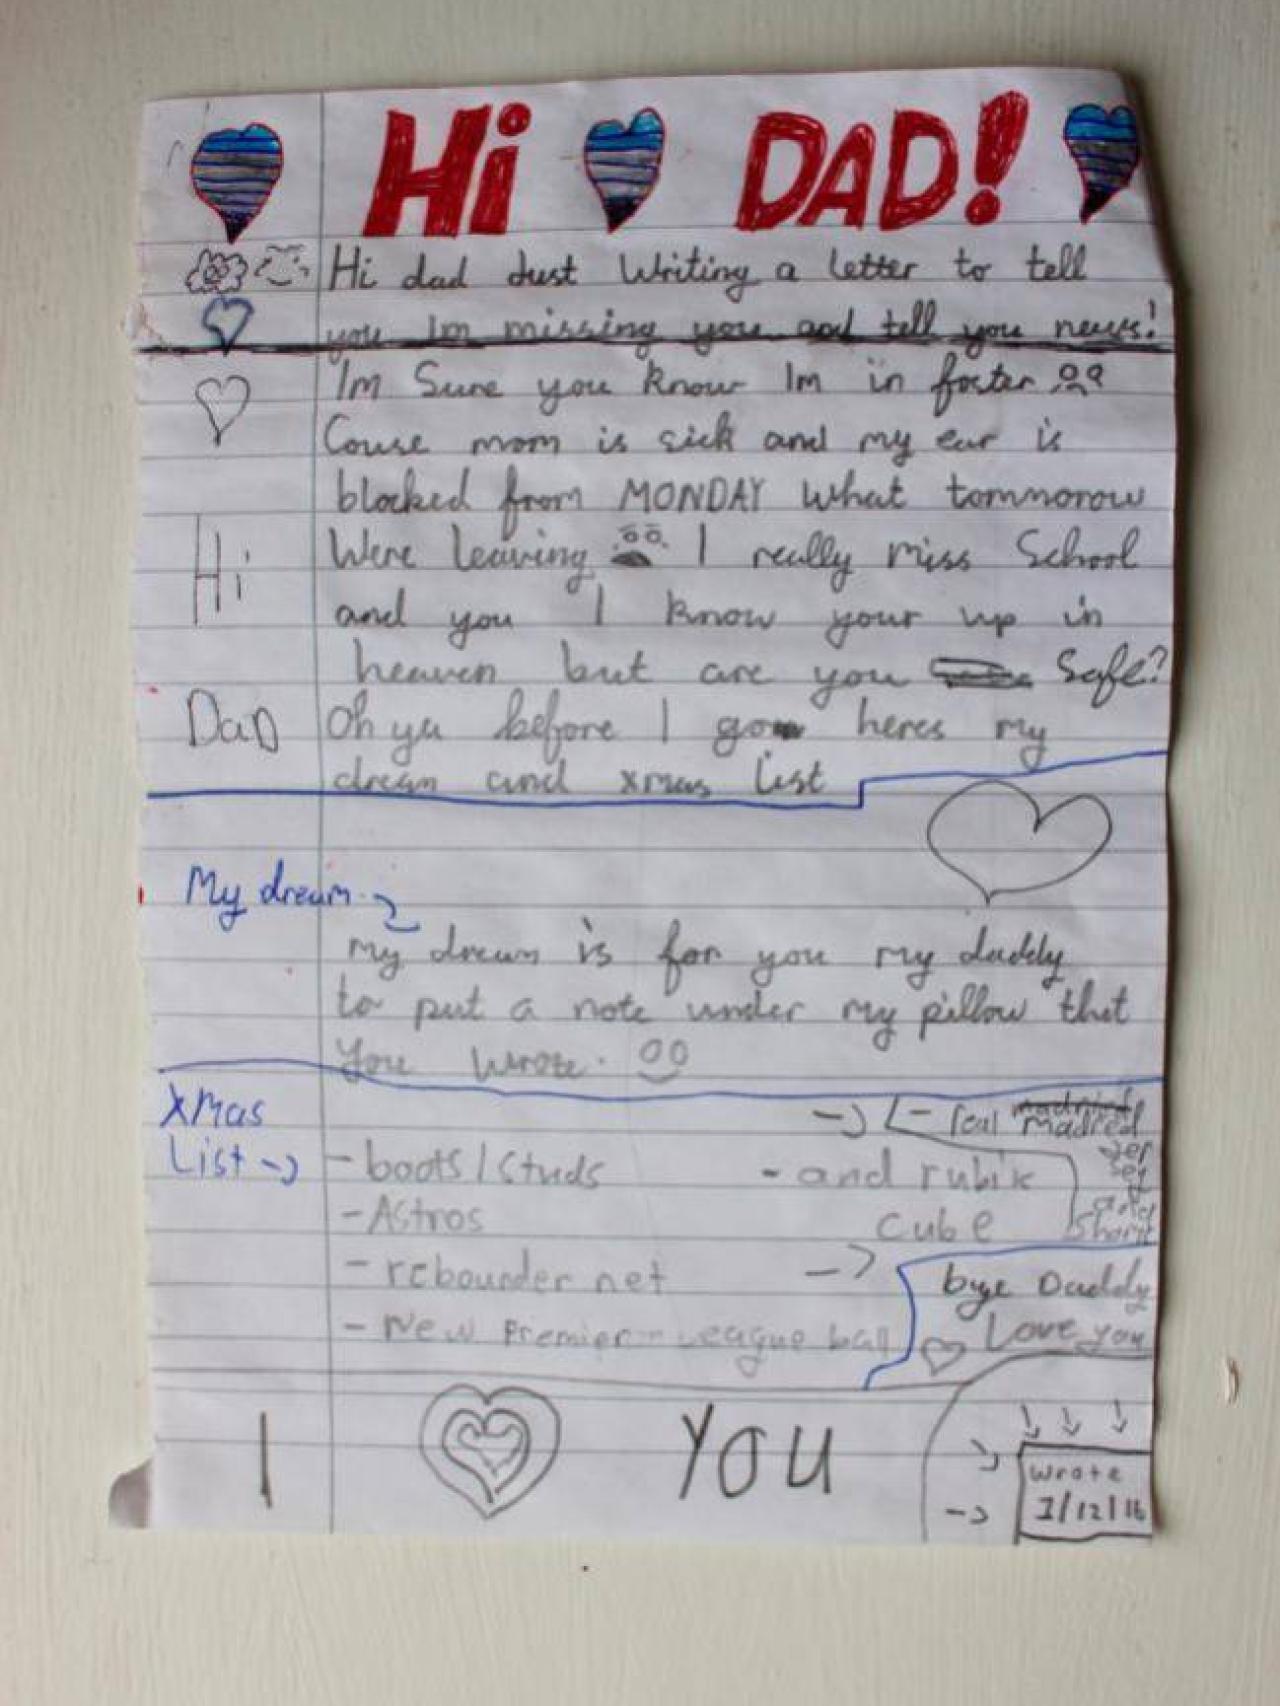 Hi DAD!
Hi dad Just Writing a letter to tell
you Im missing you and tell you news!
Im Sure you know Im in foster
Couse mom is sick and my ear is
blocked from MONDAY What tommorow
Hi
Were leaving I really miss School
and you I know your up in
heaven but are you Safe?
Dad
Oh ya before I go heres my
dream and xmas list
My dream
My dream is for you my daddy
to put a note under my pillow that
You wrote.
XMas
List
- boots/studs
- Astros
- rebounder net
- New Premier League ball
- real Madred
Jer
sey
and
Short
- and rubik
cube
bye Daddy
Love you
I YOU
Wrote
1/12/16